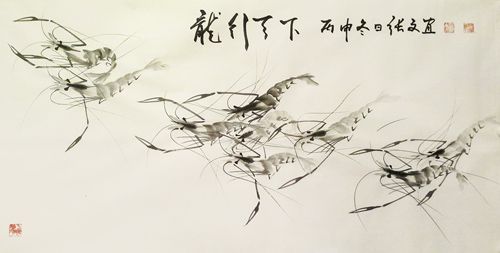 龍行天下 丙申冬日张文宜